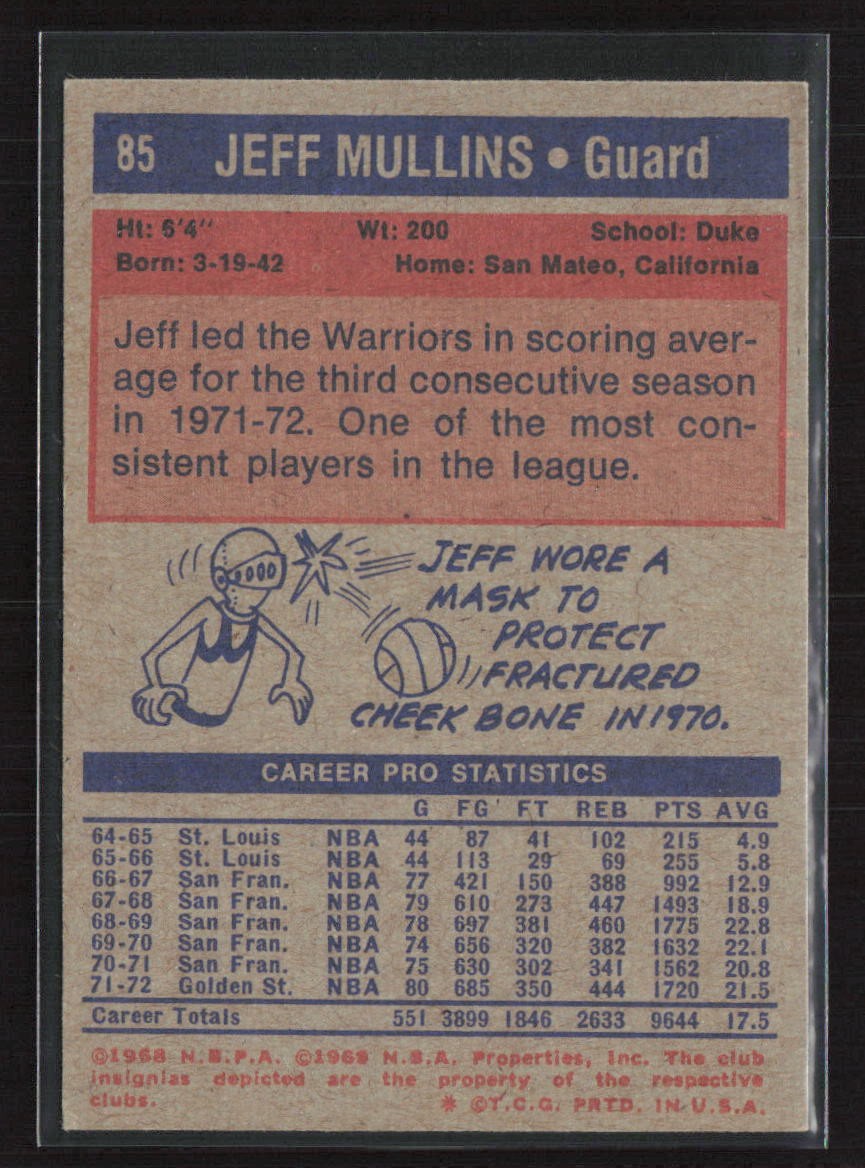 85 JEFF MULLINS • Guard
Ht: 6'4" Wt: 200 School: Duke
Born: 3-19-42 Home: San Mateo, California
Jeff led the Warriors in scoring aver-
age for the third consecutive season
in 1971-72. One of the most con-
sistent players in the league.
JEFF WORE A
MASK TO
PROTECT
FRACTURED
CHEEK BONE IN 1970.
CAREER PRO STATISTICS
G FG FT REB PTS AVG
64-65 St. Louis NBA 44 87 41 102 215 4.9
65-66 St. Louis NBA 44 113 29 69 255 5.8
66-67 San Fran. NBA 77 421 150 388 992 12.9
67-68 San Fran. NBA 79 610 273 447 1493 18.9
68-69 San Fran. NBA 78 697 381 460 1775 22.8
69-70 San Fran. NBA 74 656 320 382 1632 22.1
70-71 San Fran. NBA 75 630 302 341 1562 20.8
71-72 Golden St. NBA 80 685 350 444 1720 21.5
Career Totals 551 3899 1846 2633 9644 17.5
©1968 N.B.P.A. ©1969 N.B.A. Properties, Inc. The club
insignias depicted are the property of the respective
clubs. * ©T.C.G. PRTD. IN U.S.A.